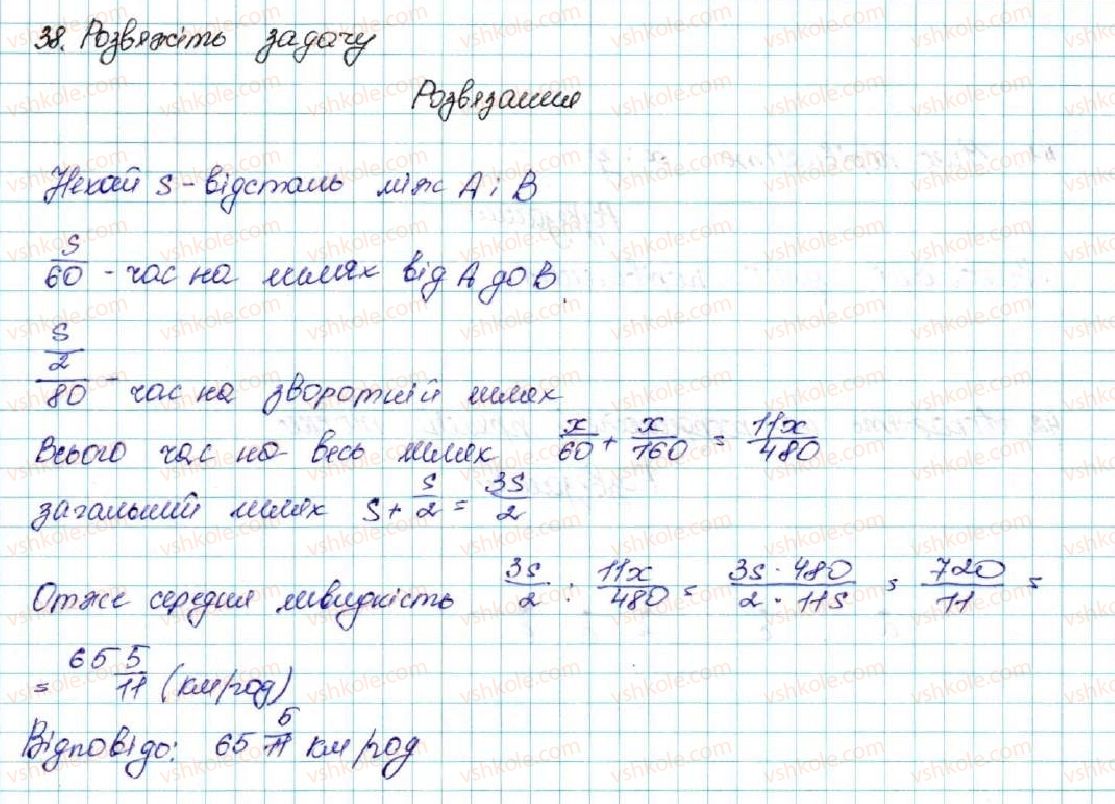 38. Розвяжіть задачу
Розвязання
Нехай s - відстань між А і В
s/60 - час на шлях від А до В
s/2/80 - час на зворотній шлях
Всього час на весь шлях x/60 + x/160 = 11x/480
загальний шлях s + s/2 = 3s/2
Отже середня швидкість 3s/2 : 11x/480 = 3s · 480/2 · 11s = 720/11 =
= 65 5/11 (км/год)
Відповідь: 65 5/11 км/год